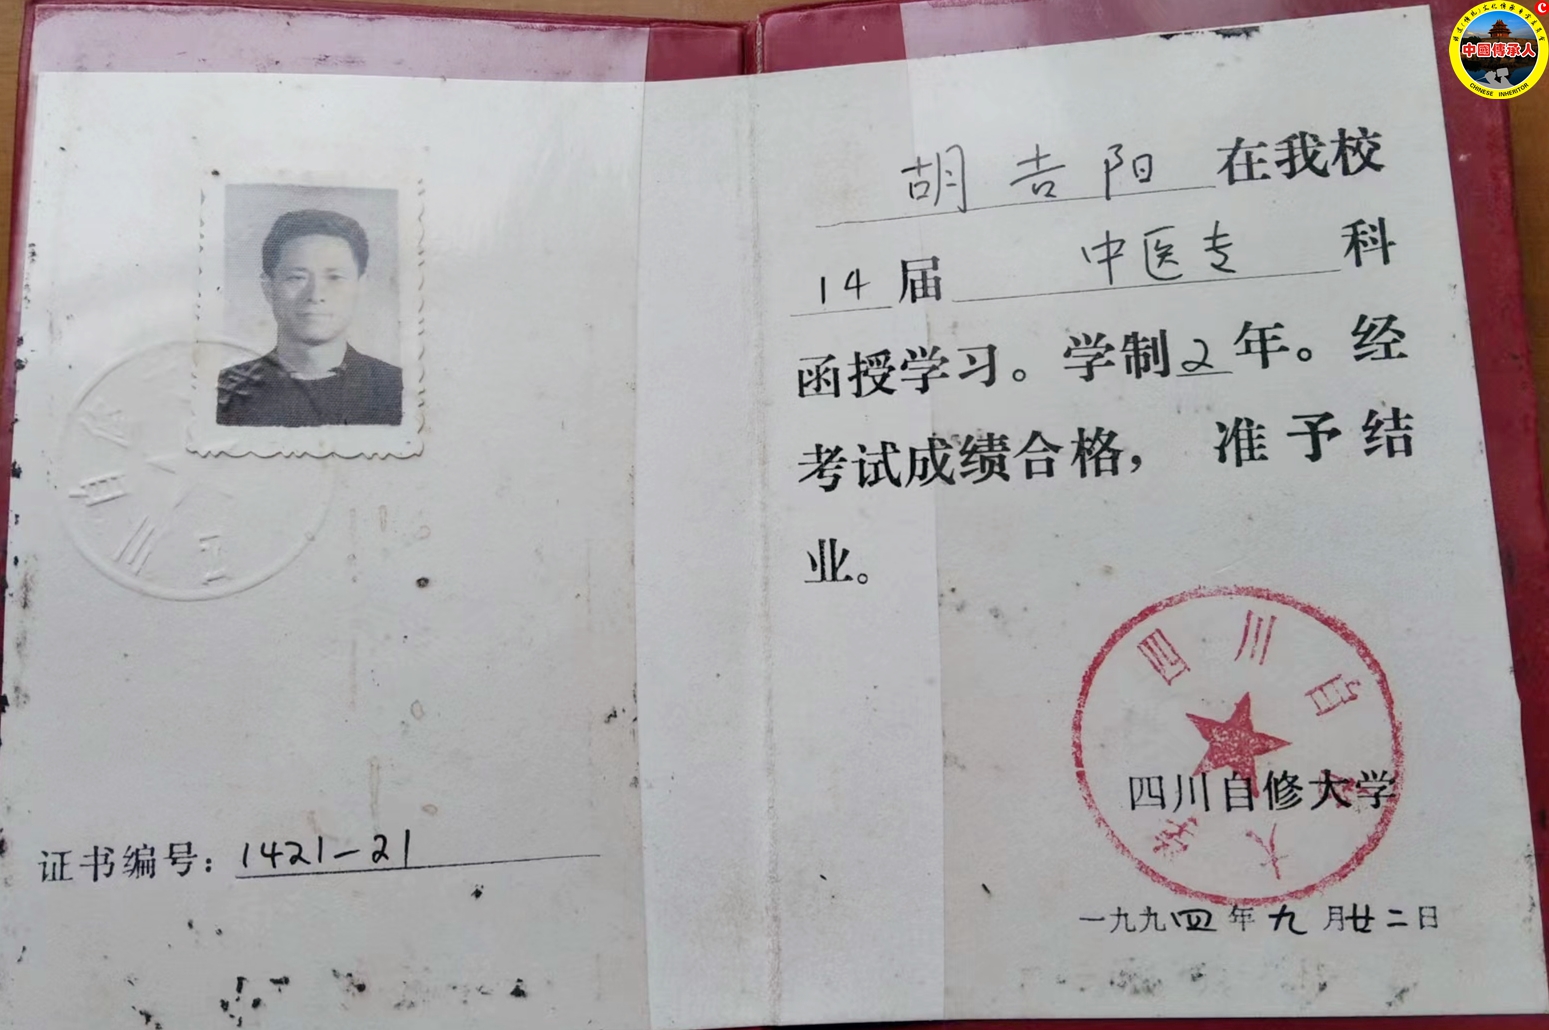 中國傳承人
CHINESE INHERITOR
胡吉阳在我校
14届 中医专科
函授学习。学制2年。经
考试成绩合格，准予结
业。
四川自
四川自修大学
大学
一九九四年九月廿二日
证书编号：1421-21